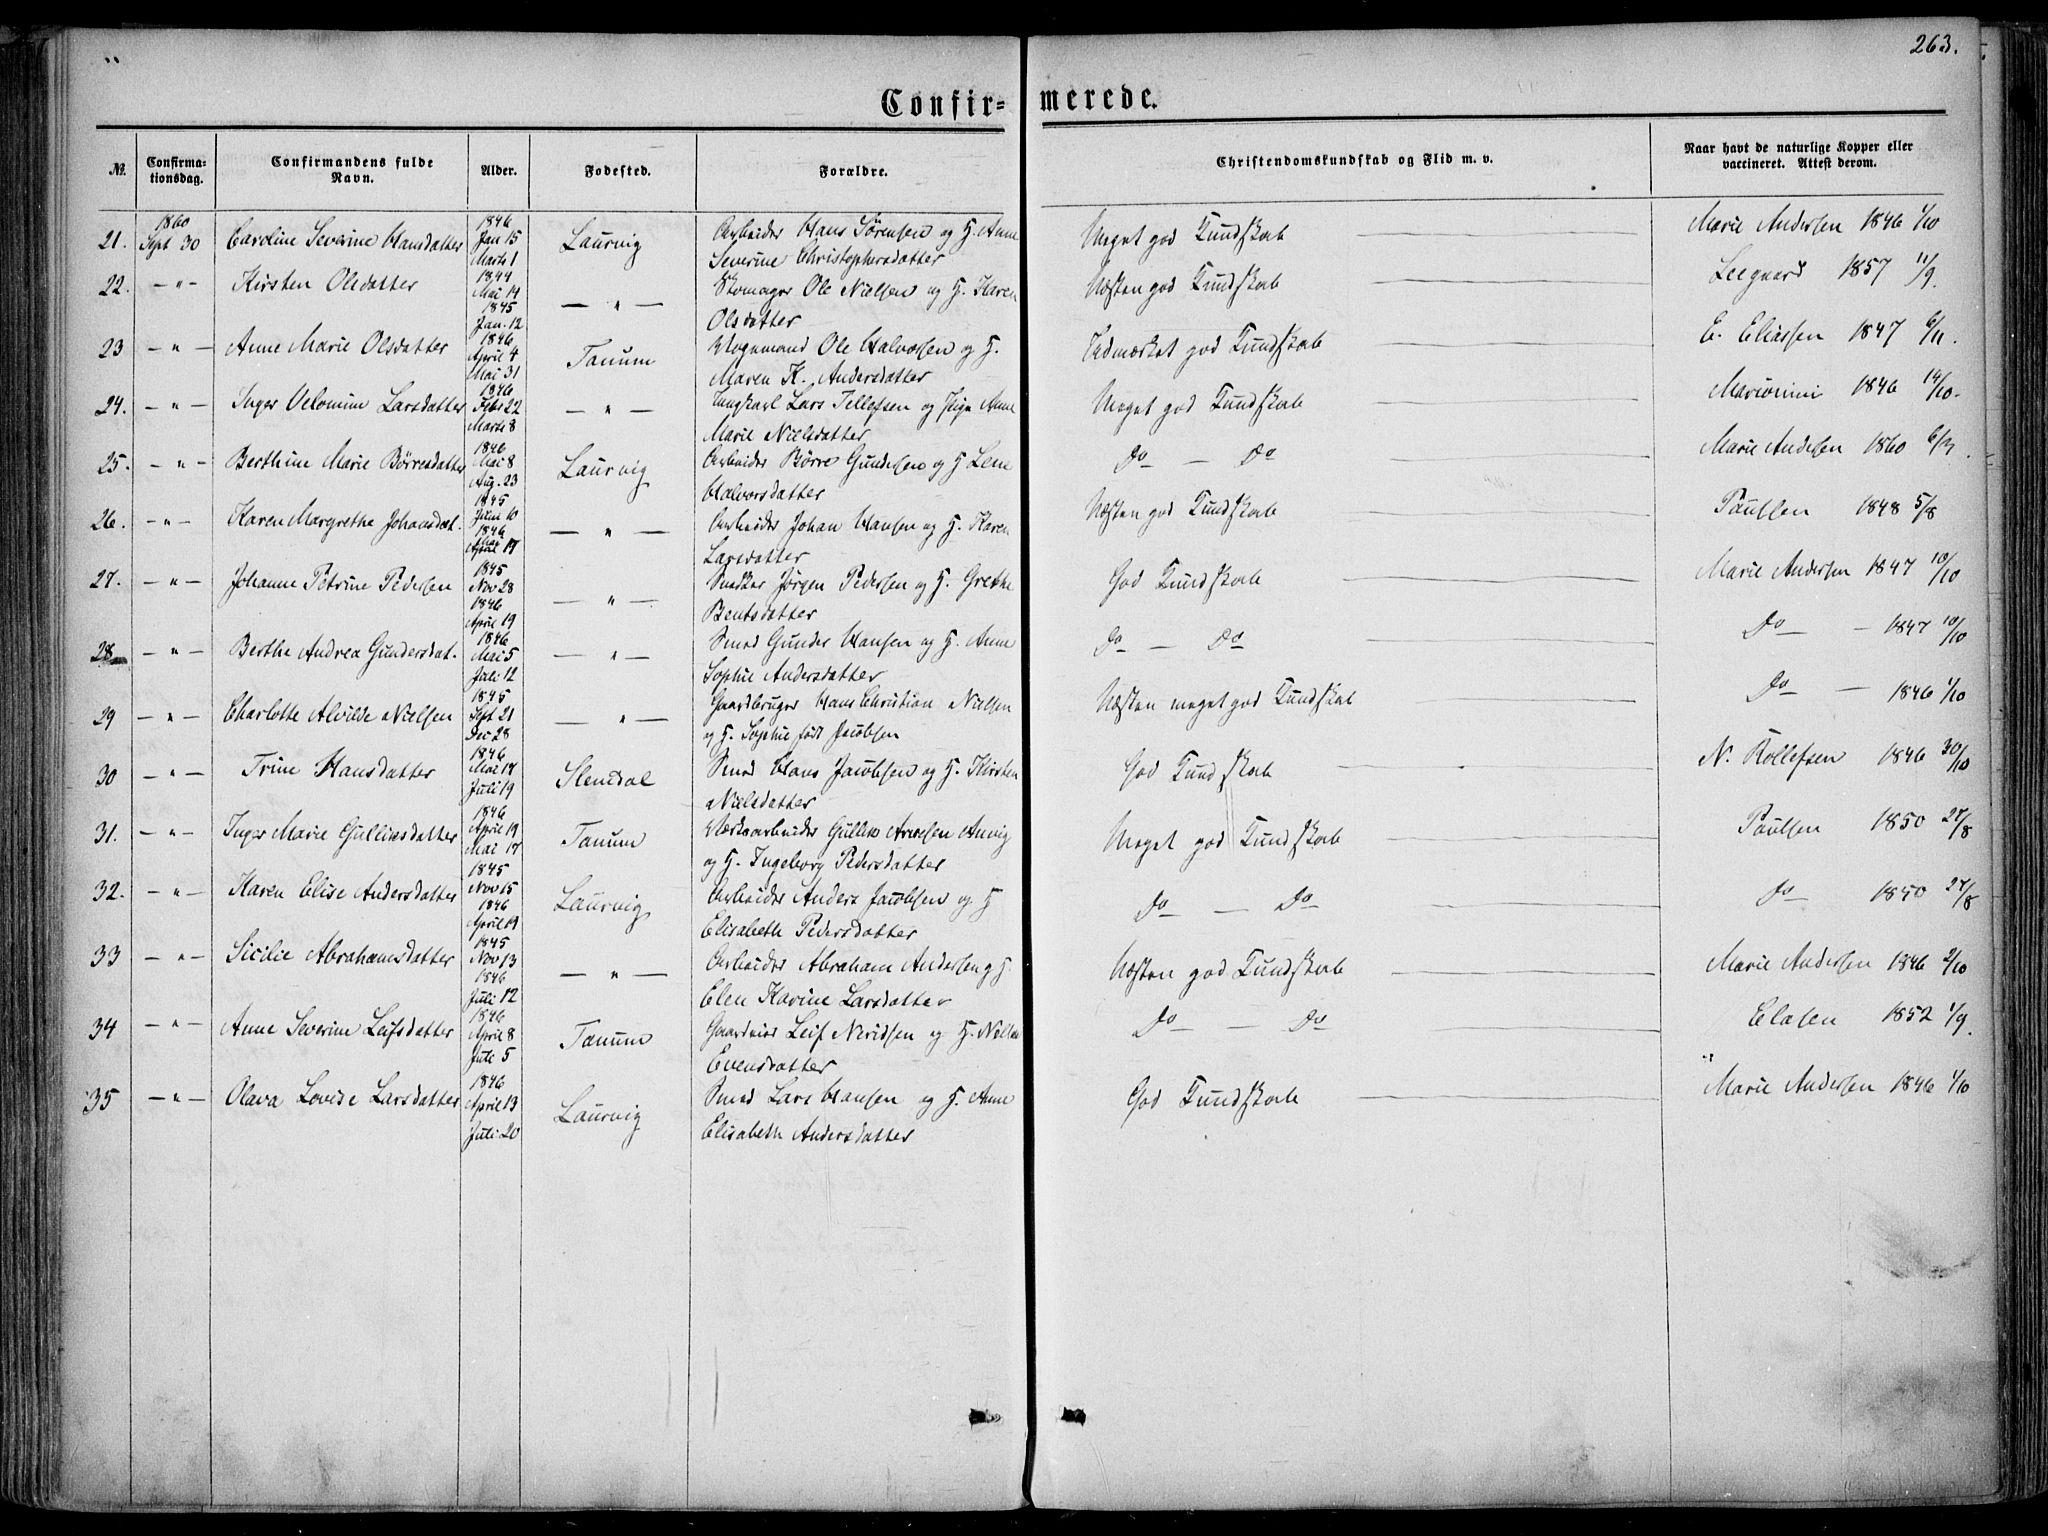 263.
Confir- merede.
No. Confirmationsdag. Confirmandens fulde Navn. Alder. Fodested. Forældre. Christendomskundskab og Flid m. v. Naar havt de naturlige Kopper eller vaccineret. Attest derom.
21. 1860 Sept 30 Caroline Severine Hansdatter 1846 Jan 15 Marts 1 Laurvig Arbeider Hans Sørensen og H. Anne Severine Christophersdatter Meget god Kundskab Marie Andersen 1846 1/10
22. —"— Kirsten Olsdatter 1844 Mai 14 1845 Jan. 12 —"— Skomager Ole Nielsen og H. Karen Olsdatter Næsten god Kundskab Leegaard 1857 11/9.
23 —"— Anne Marie Olsdatter 1846 April 4 Mai 31 Tanum Vognmand Ole Halvorsen og H. Maren K. Andersdatter Udmærket god Kundskab E. Eliassen 1847 6/11.
24. —"— Inger Velomine Larsdatter 1846 Febr 22 Marts 8 —"— Ungkarl Lars Tellefsen og Pige Anne Marie Nielsdatter Meget god Kundskab 1846 14/10.
25. —"— Berthine Marie Børresdatter 1846 Mai 8 Aug. 23 Laurvig Arbeider Børre Gundersen og H Lene Halvorsdatter Do — Do Marie Andersen 1860 6/3.
26. —"— Karen Margrethe Johansdat. 1845 Juni 10 1846 April 17 —"— Arbeider Johan Hansen og H. Karen Larsdatter Næsten god Kundskab Paulsen 1848 5/8
27. —"— Johanne Petrine Pedersen 1845 Nov 28 1846 April 19 —"— Snedker Jørgen Pedersen og H. Grethe Bentsdatter God Kundskab Marie Andersen 1847 10/10
28 —"— Berthe Andrea Gundersdat. 1846 Mai 5 Juli 12 —"— Smed Gunder Hansen og H. Anne Sophie Andersdatter Do — Do Do — 1847 10/10
29 —"— Charlotte Alvilde Nielsen 1845 Sept 21 Dec 28 —"— Gaardbruger Hans Christian Nielsen og H. Sophie født Jacobsen Næsten meget god Kundskab Do — 1846 1/10
30 —"— Trine Hansdatter 1846 Mai 17 Juli 19 Slemdal Smed Hans Jacobsen og H. Kirsten Nielsdatter God Kundskab N. Rollefsen 1846 30/10
31. —"— Inger Marie Gulliksdatter 1846 April 19 Mai 17 Tanum Værksarbeider Gullik Arnesen Anvig og H. Ingeborg Pedersdatter Meget god Kundskab Paulsen 1850 27/8
32. —"— Karen Elise Andersdatter 1845 Nov 15 1846 April 19 Laurvig Arbeider Anders Jacobsen og H Elisabeth Pedersdatter Do — Do Do 1850 27/8
33 —"— Sicilie Abrahamsdatter 1845 Nov 13 1846 Juli 12 —"— Arbeider Abraham Andersen og H. Elen Karine Larsdatter Næsten god Kundskab Marie Andersen 1846 2/10
34 —"— Anne Severine Leifsdatter 1846 April 8 Juli 5 Tanum Leif og H. Evensdatter Do — Do 1852 1/9.
35 —"— Olava Lovise Larsdatter 1846 April 13 Juli 20 Laurvig Smed Lars Hansen og H. Anne Elisabeth Andersdatter God Kundskab Marie Andersen 1846 1/10